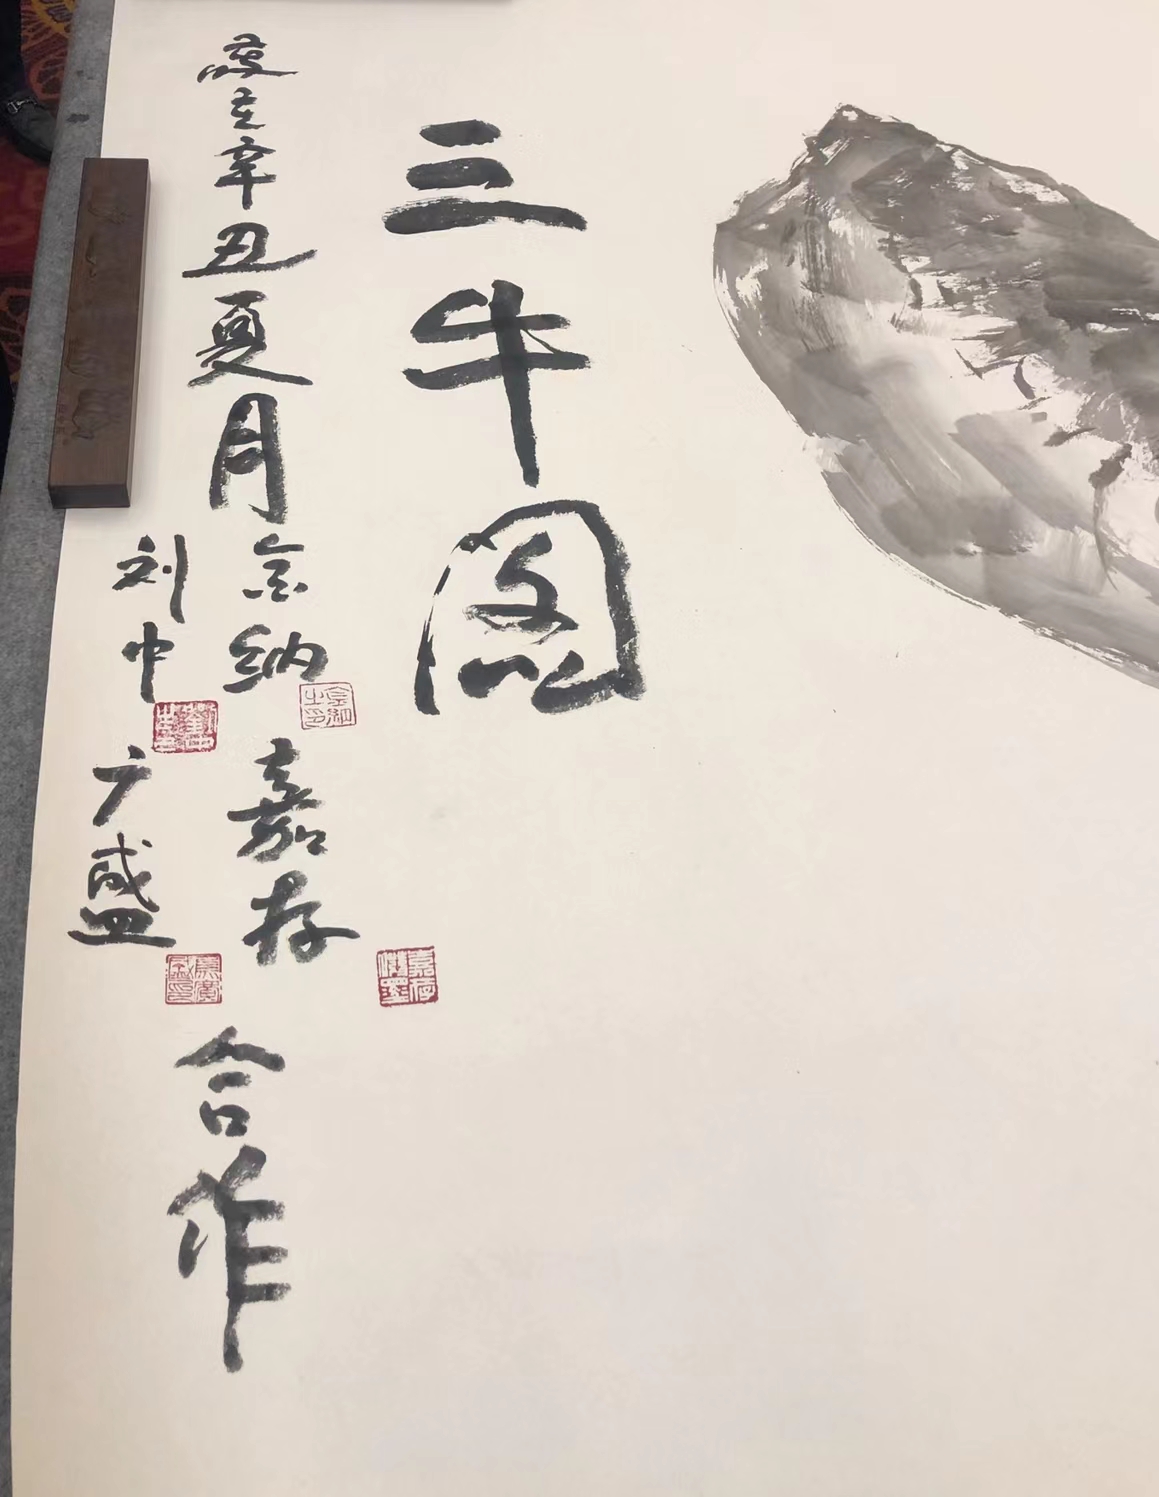 三牛图
岁在辛丑夏月宗纳嘉存合作
刘中广盛
嘉存